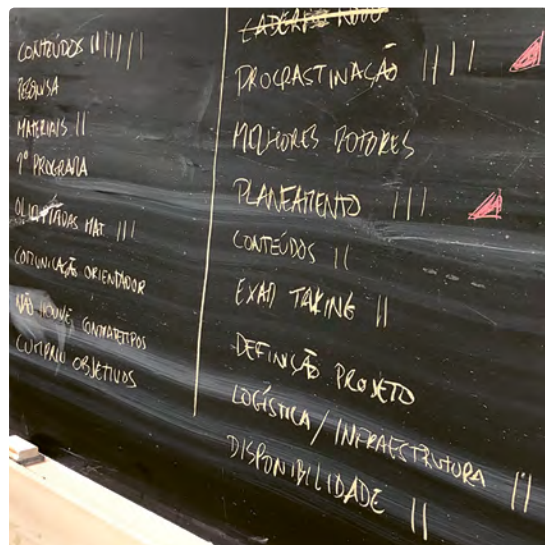 CONTEÚDOS IIIIII
PESQUISA
MATERIAIS II
1º PROGRAMA
OLIMPÍADAS MAT III
COMUNICAÇÃO ORIENTADOR
NÃO HOUVE CONTRATEMPOS
CUMPRIU OBJETIVOS
PROCRASTINAÇÃO IIII
MELHORES MOTORES
PLANEAMENTO III
CONTEÚDOS II
EXAM TAKING II
DEFINIÇÃO PROJETO
LOGÍSTICA / INFRAESTRUTURA II
DISPONIBILIDADE II